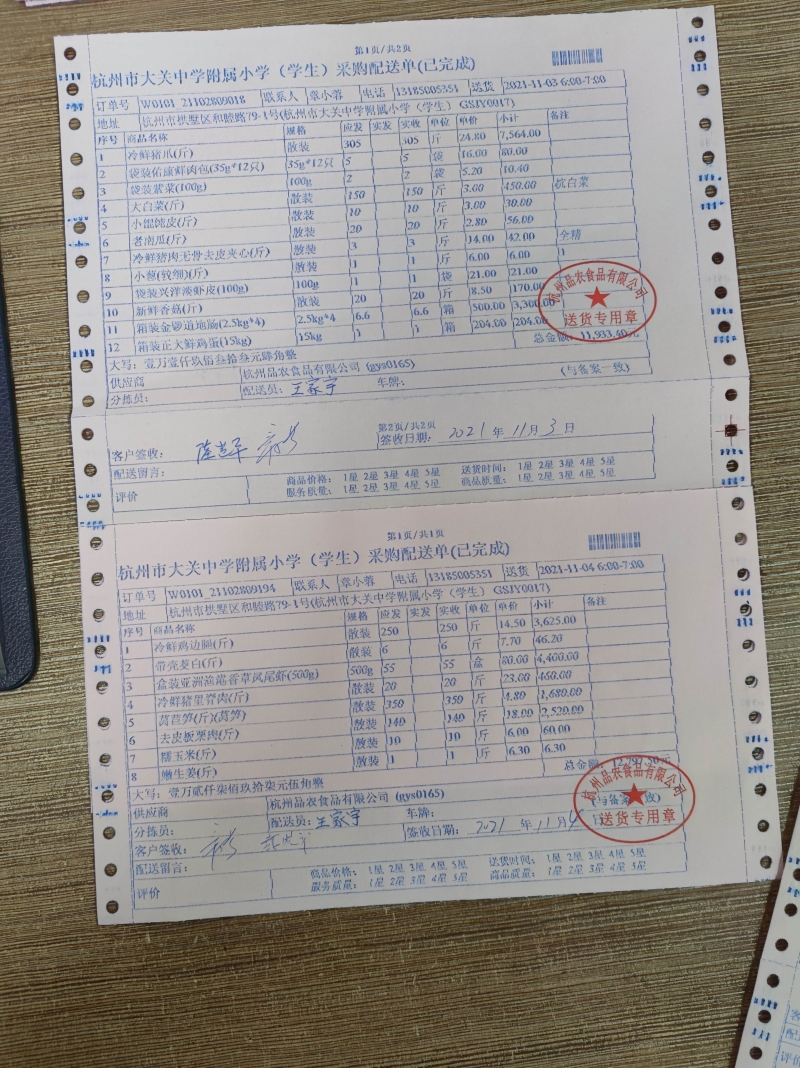 第1页/共2页
杭州市大关中学附属小学（学生）采购配送单(已完成)
订单号 W0101_21102809018 联系人 章小蓉 电话 13185005351 送货 2021-11-03 6:00-7:00
地址 杭州市拱墅区和睦路79-1号(杭州市大关中学附属小学（学生）GSJY0017)
序号 商品名称 规格 应发 实发 实收 单位 单价 小计 备注
1 冷鲜猪爪(斤) 散装 305 305 斤 24.80 7,564.00
2 袋装佑康鲜肉包(35g*12只) 35g*12只 5 5 袋 16.00 80.00
3 袋装紫菜(100g) 100g 2 2 袋 5.20 10.40
4 大白菜(斤) 散装 150 150 斤 3.00 450.00 杭白菜
5 小馄饨皮(斤) 散装 10 10 斤 3.00 30.00
6 老南瓜(斤) 散装 20 20 斤 2.80 56.00
7 冷鲜猪肉无骨去皮夹心(斤) 散装 3 3 斤 14.00 42.00 全精
8 小葱(较细)(斤) 散装 1 1 斤 6.00 6.00 1
9 袋装兴洋淡虾皮(100g) 100g 1 1 袋 21.00 21.00
10 新鲜香菇(斤) 散装 20 20 斤 8.50 170.00
11 箱装金锣道地肠(2.5kg*4) 2.5kg*4 6.6 6.6 箱 500.00 3,300.00
12 箱装正大鲜鸡蛋(15kg) 15kg 1 1 箱 204.00 204.00
大写：壹万壹仟玖佰叁拾叁元肆角整 总金额：11,933.40元
供应商 杭州品农食品有限公司 (gys0165) (与备案一致)
分拣员： 配送员：王家宇 车牌：
杭州品农食品有限公司
送货专用章
第2页/共2页
客户签收： 签收日期： 2021 年 11 月 3 日
配送留言：
评价 商品价格： 1星 2星 3星 4星 5星 送货时间： 1星 2星 3星 4星 5星
服务质量： 1星 2星 3星 4星 5星 商品质量： 1星 2星 3星 4星 5星
第1页/共1页
杭州市大关中学附属小学（学生）采购配送单(已完成)
订单号 W0101_21102809194 联系人 章小蓉 电话 13185005351 送货 2021-11-04 6:00-7:00
地址 杭州市拱墅区和睦路79-1号(杭州市大关中学附属小学（学生）GSJY0017)
序号 商品名称 规格 应发 实发 实收 单位 单价 小计 备注
1 冷鲜鸡边腿(斤) 散装 250 250 斤 14.50 3,625.00
2 带壳茭白(斤) 散装 6 6 斤 7.70 46.20
3 盒装亚洲渔港香草凤尾虾(500g) 500g 55 55 盒 80.00 4,400.00
4 冷鲜猪里脊肉(斤) 散装 20 20 斤 23.00 460.00
5 莴苣笋(斤)(莴笋) 散装 350 350 斤 4.80 1,680.00
6 去皮板栗肉(斤) 散装 140 140 斤 18.00 2,520.00
7 糯玉米(斤) 散装 10 10 斤 6.00 60.00
8 嫩生姜(斤) 散装 1 1 斤 6.30 6.30
大写：壹万贰仟柒佰玖拾柒元伍角整 总金额：12,797.50元
供应商 杭州品农食品有限公司 (gys0165) (与备案一致)
分拣员： 配送员：王家宇 车牌：
客户签收： 签收日期： 2021 年 11 月 4
杭州品农食品有限公司
送货专用章
配送留言：
评价 商品价格： 1星 2星 3星 4星 5星 送货时间： 1星 2星 3星 4星 5星
服务质量： 1星 2星 3星 4星 5星 商品质量： 1星 2星 3星 4星 5星